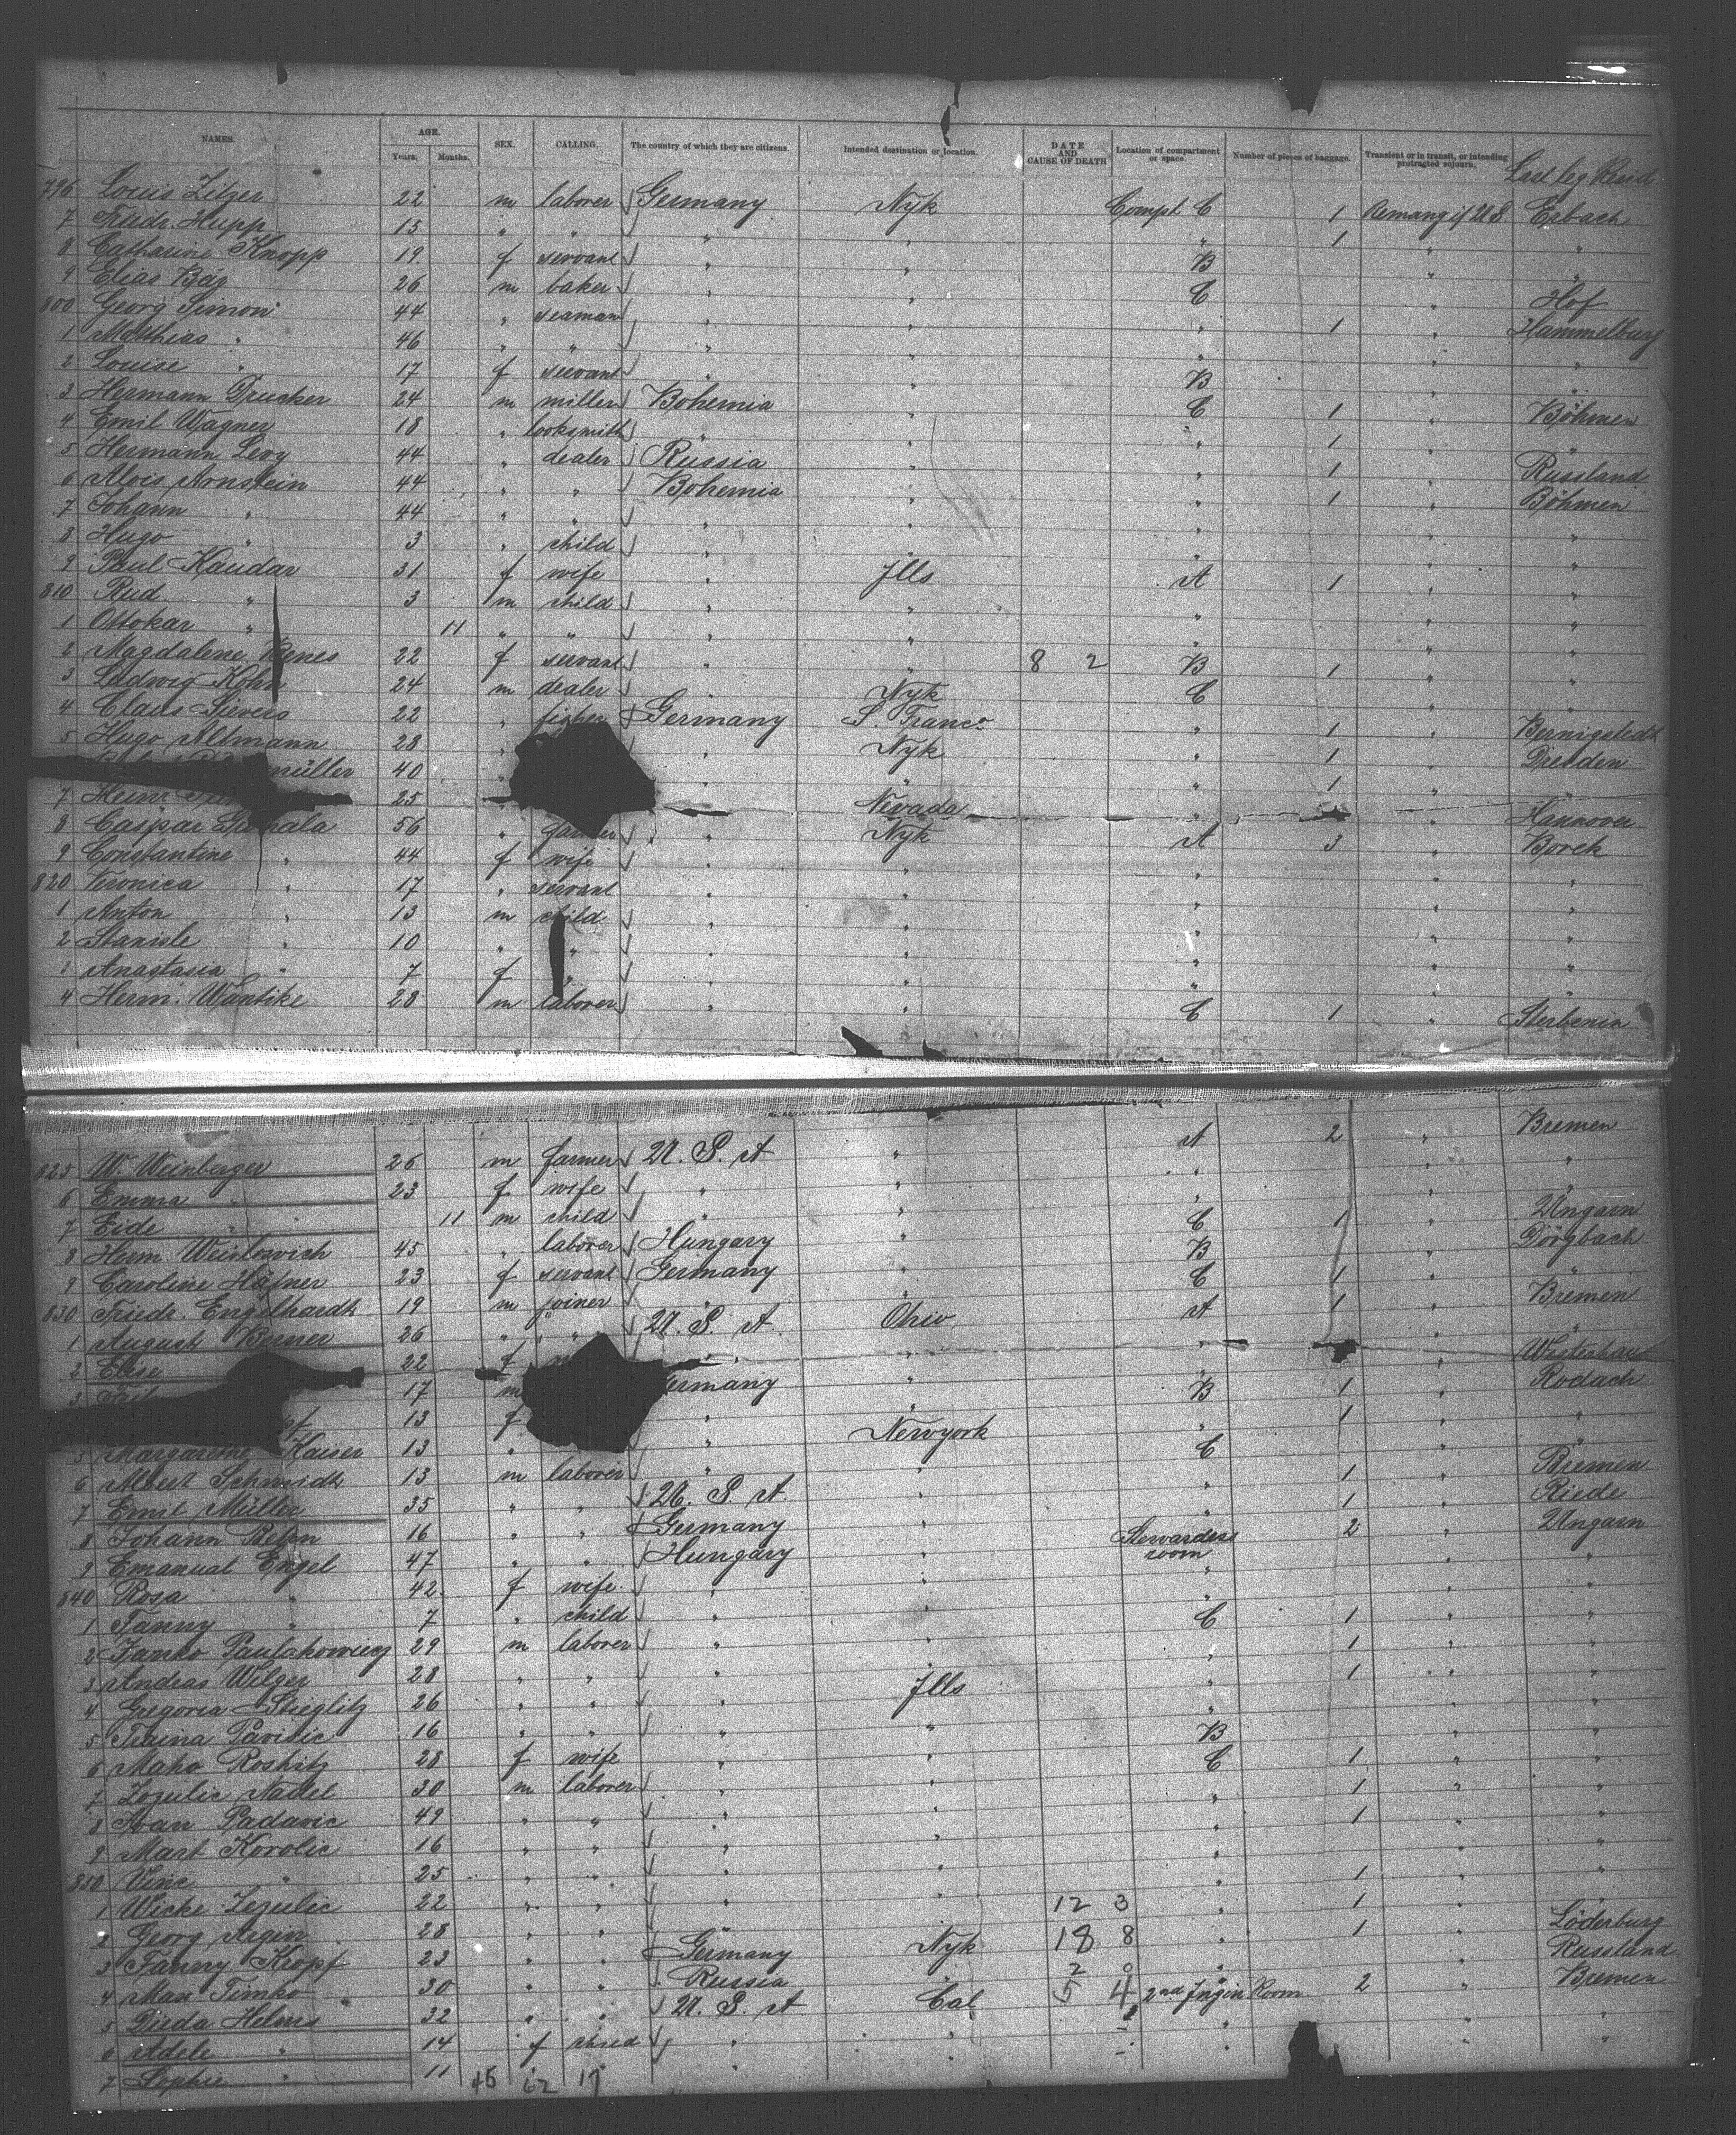 NAMES. AGE. Years. Months. SEX. CALLING. The country of which they are citizens. Intended destination or location. DATE AND CAUSE OF DEATH Location of compartment or space. Number of pieces of baggage. Transient or in transit, or intending protracted sojourn. Last leg Resid
796 Louis Zilger 22 m laborer Germany Nyk Compt C 1 Remang if U S Erbach
7 Friedr. Hupp 15 " " " " " 1 " "
8 Catharine Knopp 19 f servant " " B " "
9 Elias Bäg 26 m baker " " C " Hof
800 Georg Simon 44 " seaman " " " 1 " Hammelburg
1 Matthias " 46 " " " " " " "
2 Louise " 17 f servant " " B " "
3 Hermann Drucker 24 m miller Bohemia " C 1 " Böhmen
4 Emil Wagner 18 " locksmith " " " 1 " "
5 Hermann Levy 44 " dealer Russia " " 1 " Russland
6 Alois Arnstein 44 " " Bohemia " " 1 " Böhmen
7 Johann " 44 " " " " " " "
8 Hugo " 3 " child " " " " "
9 Paul Kaudar 31 f wife " Ills A 1 " "
810 Rud. " 3 m child " " " " "
1 Ottokar " 11 " " " " " " "
2 Magdalene Benes 22 f servant " " 8 2 B 1 " "
3 Ludwig Kohn 24 m dealer " Nyk C " "
4 Claus Sievers 22 " fisher Germany S. Franco " 1 " Bernigstedt
5 Hugo Altmann 28 " " Nyk " 1 " Dresden
müller 40 " " " 1 " "
7 Heinr. 25 " Nevada " " Hannover
8 Caspar 56 " farmer " Nyk A 3 " Borek
9 Constantine " 44 f wife " " " " "
820 Veronica " 17 " servant " " " " "
1 Anton " 13 m child " " " " "
2 Stanisle " 10 " " " " " " "
3 Anastasia " 7 f " " " " " "
4 Herm. Wantike 28 m laborer " " C 1 " Sterbenin
825 W. Weinberger 26 m farmer U. S. A " A 2 " Bremen
6 Emma " 23 f wife " " " " "
7 Eide " 11 m child " " " " "
8 Herm. Weinlowich 45 " laborer Hungary " C 1 " Ungarn
9 Caroline Häfner 23 f servant Germany " B " Dörzbach
830 Friedr. Engelhardt 19 m joiner " " C 1 " "
1 August Berner 26 " " U. S. A. Ohio A 1 " Bremen
2 Elise 22 f " " " "
3 17 m Germany " " Westerhau
13 f " " B 1 " Rodach
5 Margarethe Kaiser 13 " " Newyork " 1 " "
6 Albert Schmidt 13 m laborer " " C " "
7 Emil Müller 35 " " U. S. A. " " 1 " Bremen
8 Johann Behn 16 " " Germany " " 1 " Riede
9 Emanual Engel 47 " " Hungary " Stewardess room 2 " Ungarn
840 Rosa " 42 f wife " " " " "
1 Fanny " 7 " child " " " " "
2 Janko 29 m laborer " " C 1 " "
3 Andreas Wilger 28 " " " " " 1 " "
4 Gregoria Stieglitz 26 " " " Ills " 1 " "
5 Traina Pavisic 16 " " " " " " "
6 Maho Roshitz 28 f wife " " B " "
7 Zozulic Nadel 30 m laborer " " C 1 " "
8 Ivan Padavic 49 " " " " " 1 " "
9 Mart Korolic 16 " " " " " 1 " "
850 Vinc " 25 " " " " " " "
1 Wicke Zezulic 22 " " " " 12 3 " 1 " "
2 Georg 28 " " " " 18 8 " 1 " "
3 Fanny Kropf 23 " " Germany Nyk 2 0 " 1 " Löderburg
4 Max Timko 30 " " Russia " 5 4 " " Russland
5 Dieda Helms 32 " " U. S. A Cal 2nd Ingin Room 2 " Bremen
6 Adele " 14 f child " " " " "
7 Sophie " 11 " " " " " " "
46 62 17